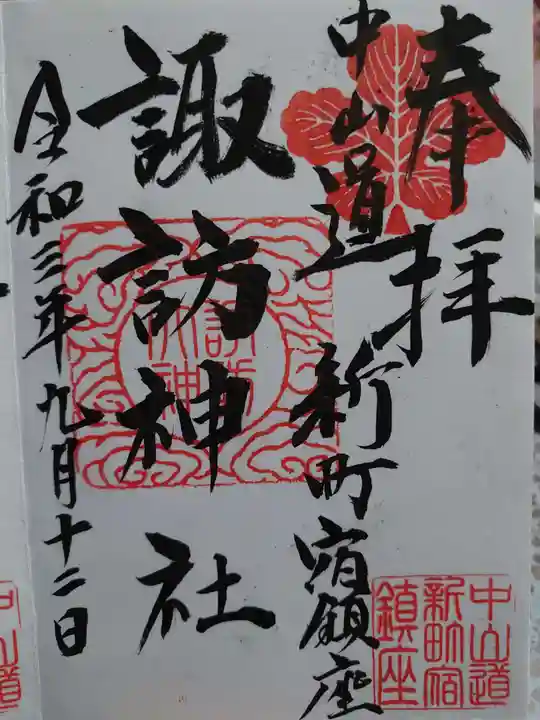 奉拝
中山道新町宿鎮座
諏訪神社
令和三年九月十二日
中山道
新町宿
鎮座
中山道